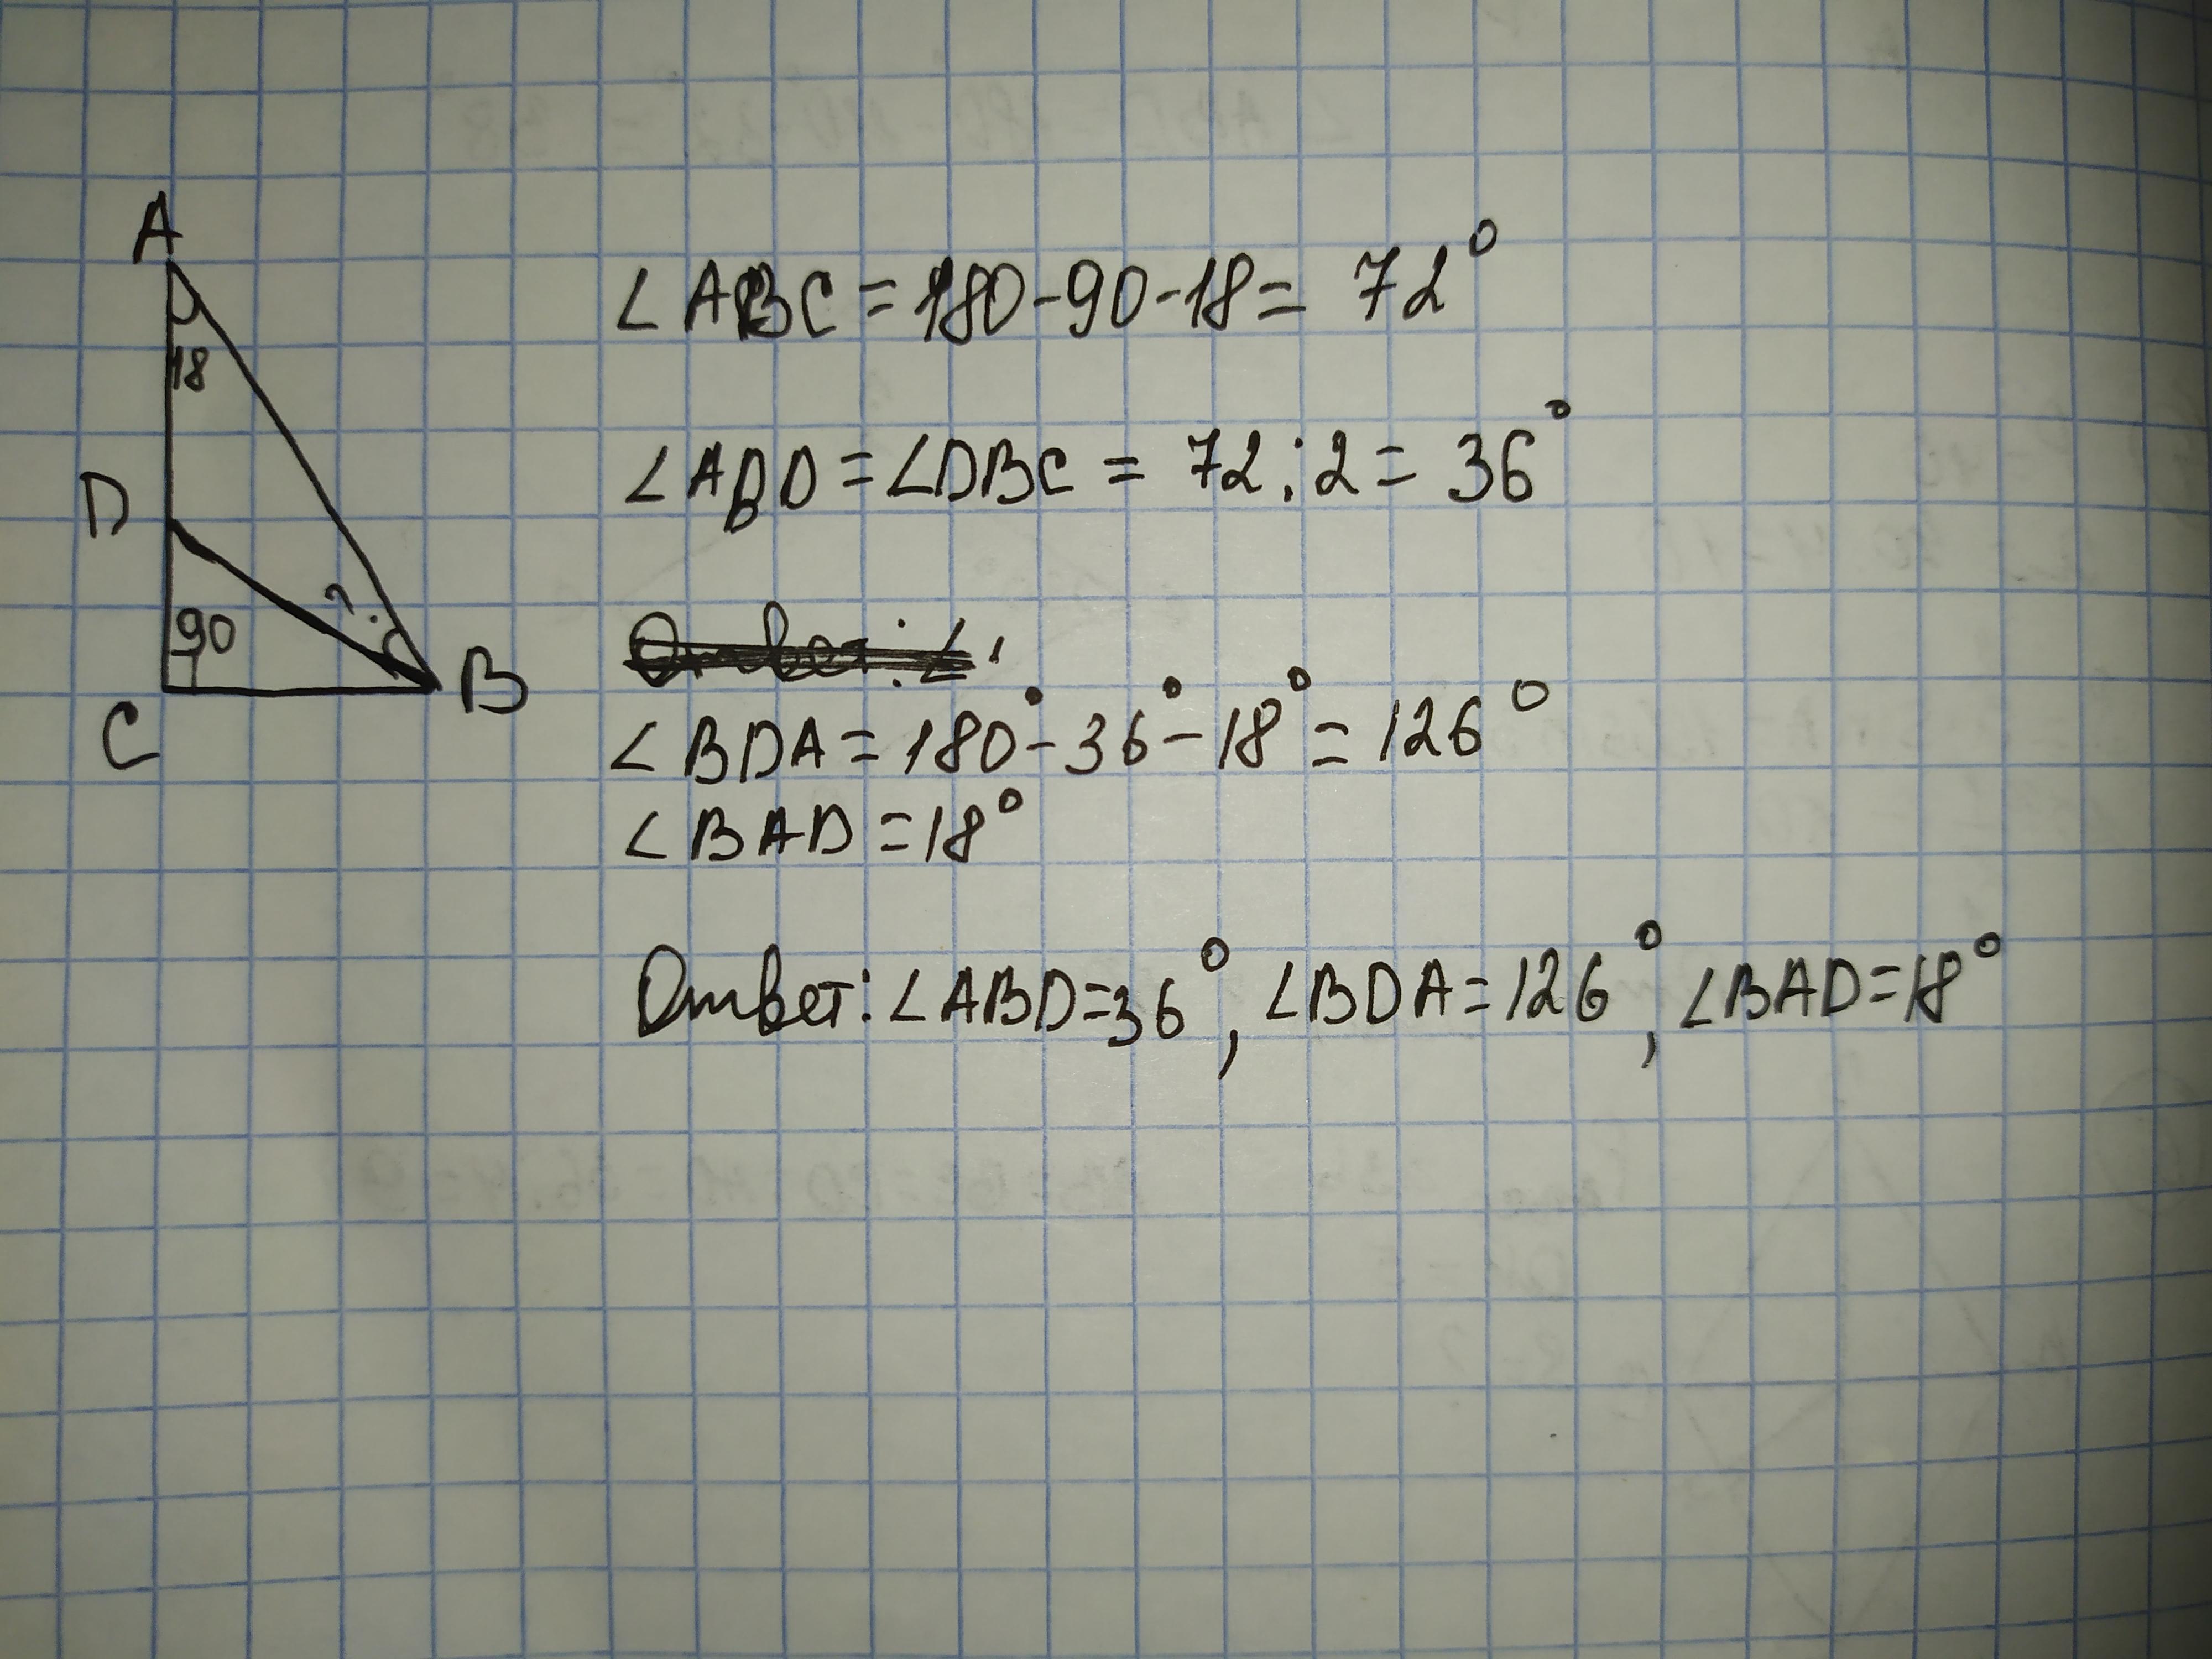 A
18
D
?
90
C
B
∠ABC = 180-90-18= 72°
∠ABD = ∠DBC = 72:2= 36°
Ответ: ∠
∠BDA = 180°-36°-18° = 126°
∠BAD = 18°
Ответ: ∠ABD=36°, ∠BDA=126°, ∠BAD=18°